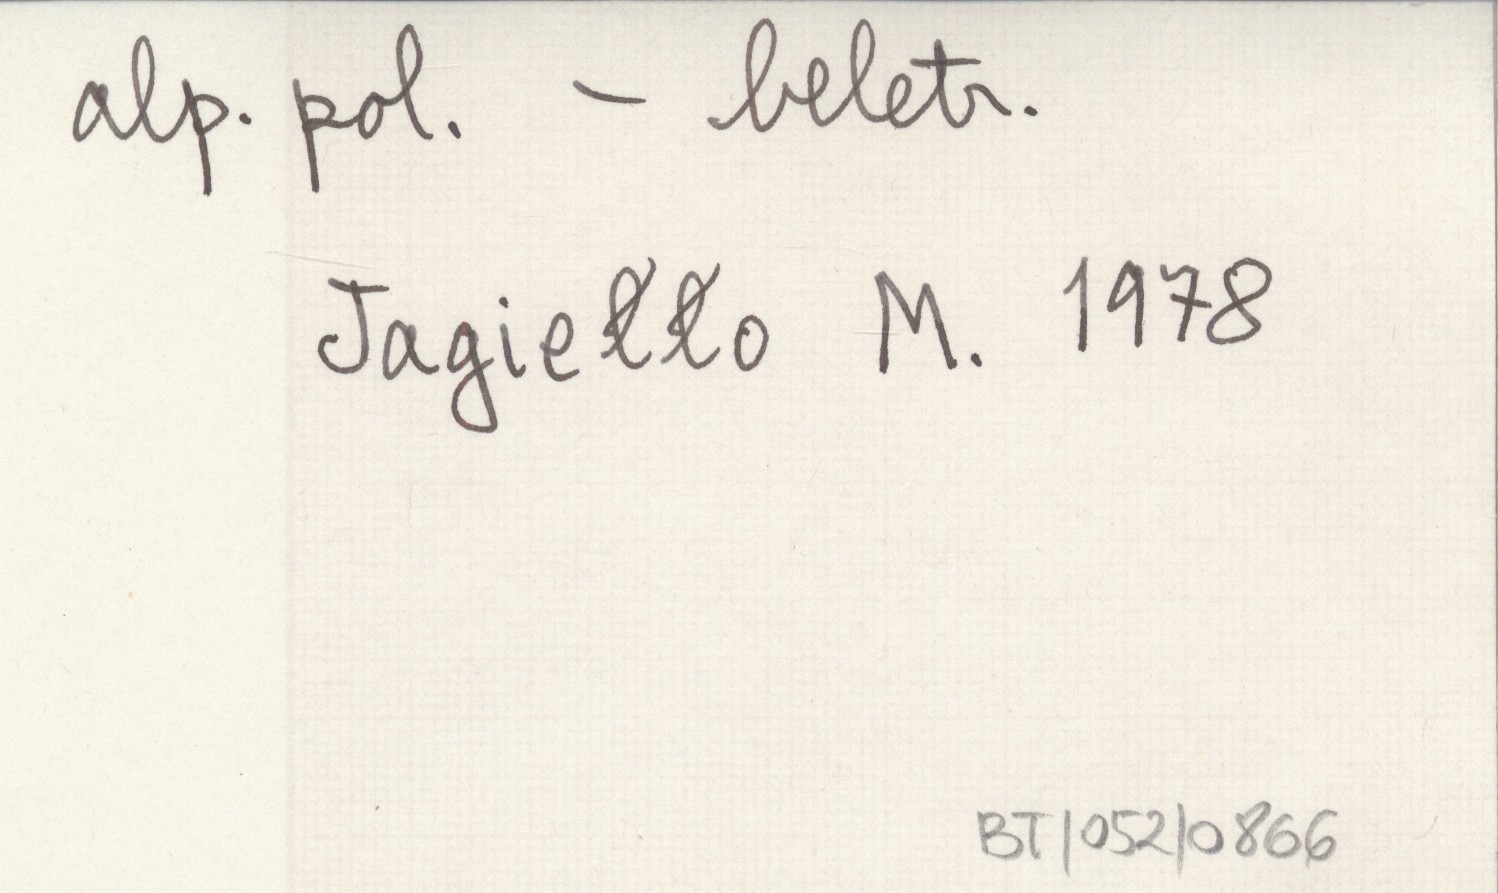 alp. pol. – beletr.
Jagiełło M. 1978
BT/052/0866